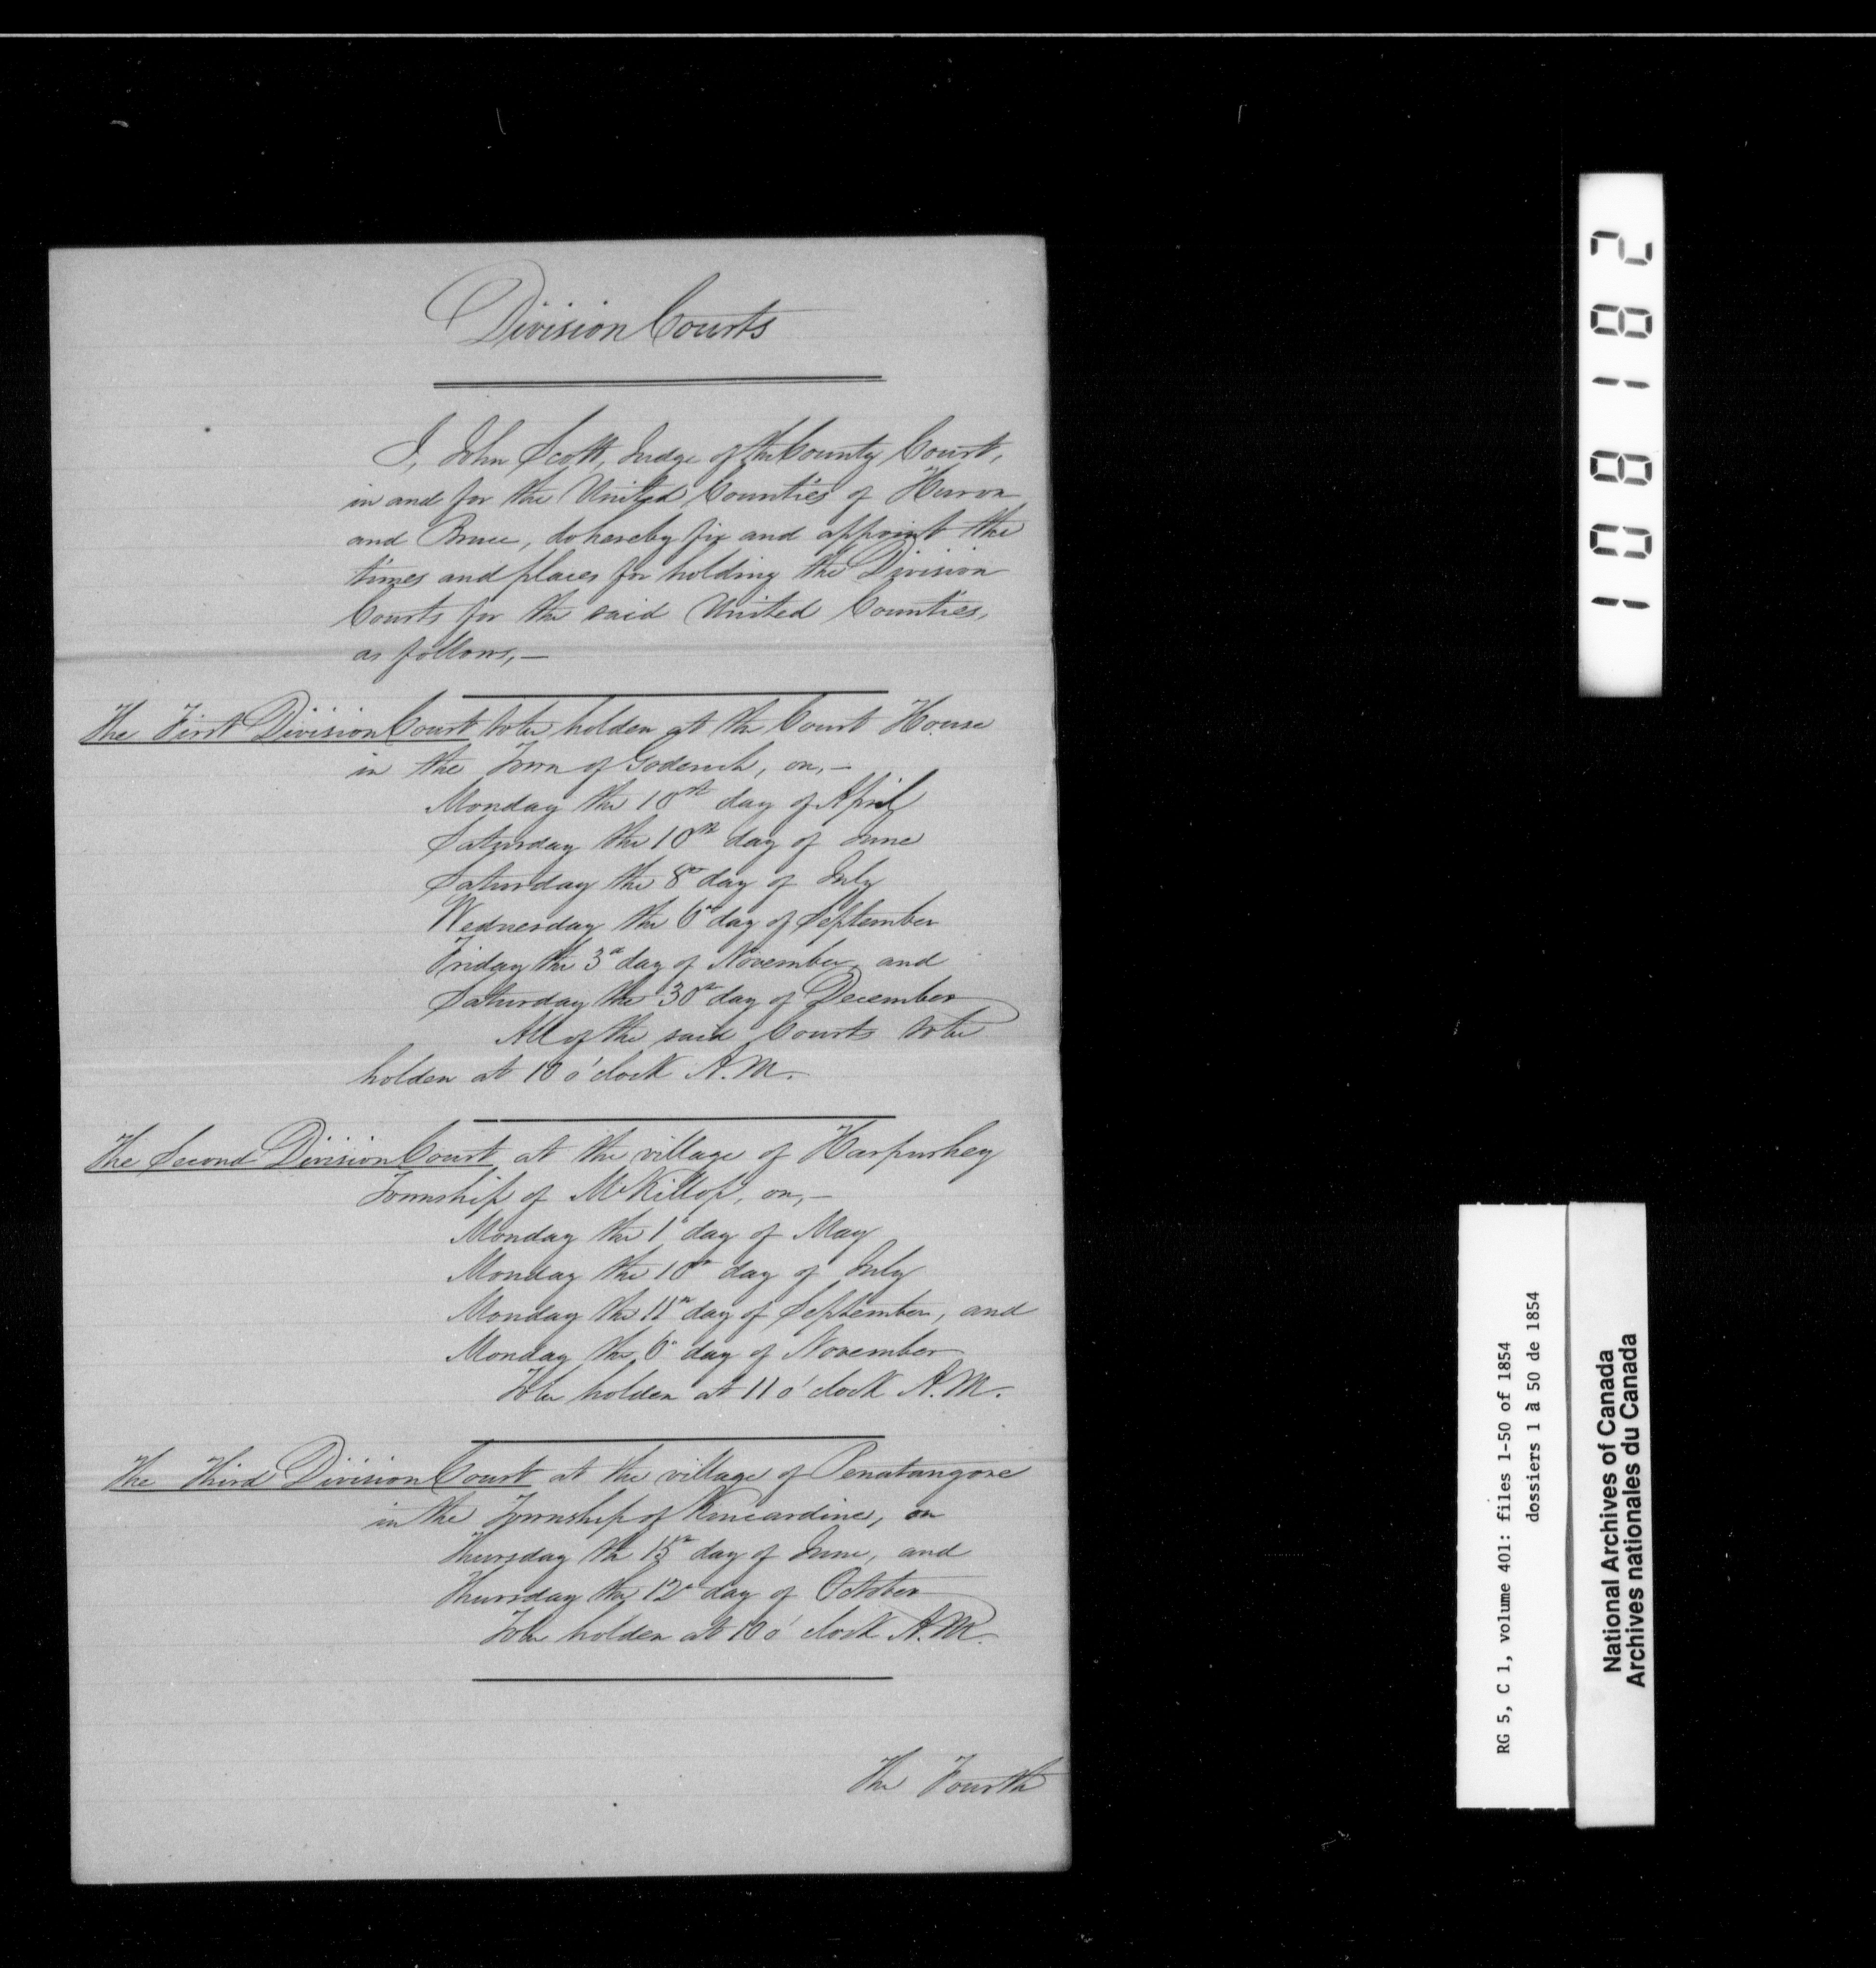 Division Courts
I, John Scott, Judge of the County Court,
in and for the United Counties of Huron
and Bruce, do hereby fix and appoint the
times and places for holding the Division
Courts for the said United Counties,
as follows,—
The First Division Court to be holden at the Court House
in the Town of Goderich, on,—
Monday the 10th day of April
Saturday the 10th day of June
Saturday the 8th day of July
Wednesday the 6th day of September
Friday the 3d day of November, and
Saturday the 30th day of December
All of the said Courts to be
holden at 10 o'clock A.M.
The Second Division Court at the village of Harpurhey
Township of McKillop, on,—
Monday the 1st day of May
Monday the 10th day of July
Monday the 11th day of September, and
Monday the 6th day of November
To be holden at 11 o'clock A.M.
The Third Division Court at the village of Penatangore
in the Township of Kincardine, on
Thursday the 15th day of June, and
Thursday the 12th day of October
To be holden at 10 o'clock A.M.
The Fourth
108182
RG 5, C 1, volume 401: files 1-50 of 1854
dossiers 1 à 50 de 1854
National Archives of Canada
Archives nationales du Canada